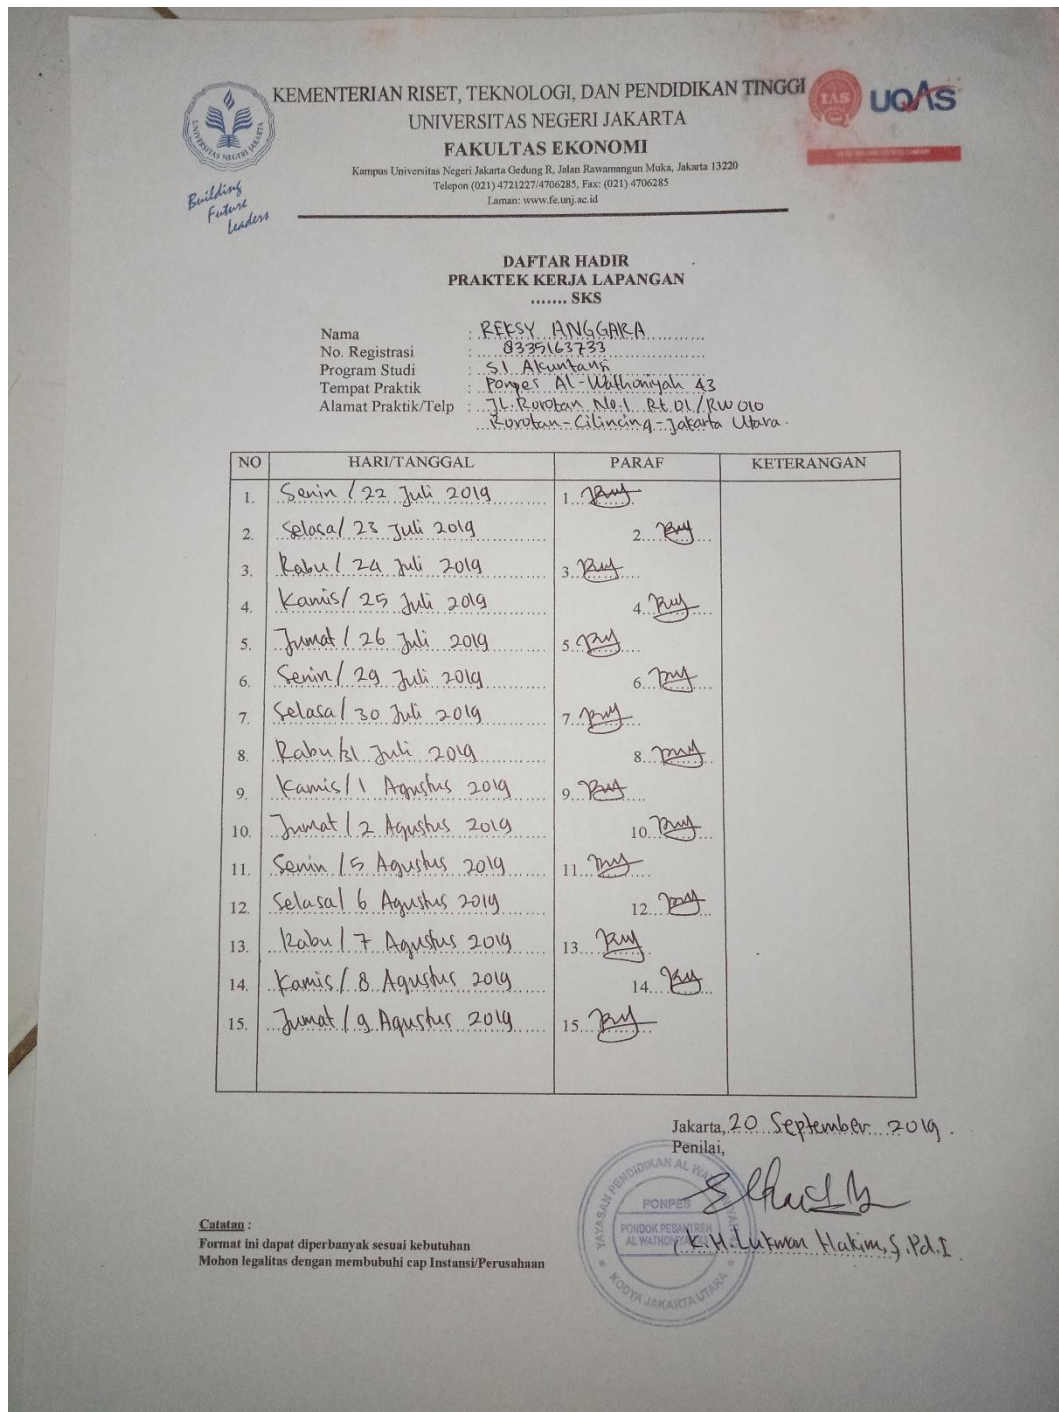 KEMENTERIAN RISET, TEKNOLOGI, DAN PENDIDIKAN TINGGI
UNIVERSITAS NEGERI JAKARTA
FAKULTAS EKONOMI
Kampus Universitas Negeri Jakarta Gedung R, Jalan Rawamangun Muka, Jakarta 13220
Telepon (021) 4721227/4706285, Fax: (021) 4706285
Laman: www.fe.unj.ac.id
UNIVERSITAS NEGERI JAKARTA
Building
Future
Leaders
IAS
UQAS
DAFTAR HADIR
PRAKTEK KERJA LAPANGAN
....... SKS
Nama : REKSY ANGGARA
No. Registrasi : 8335163733
Program Studi : S1 Akuntansi
Tempat Praktik : Ponpes Al-Wathoniyah 43
Alamat Praktik/Telp : JL. Rorotan No.1 Rt.01/RW 010
Rorotan-Cilincing-Jakarta Utara.
NO HARI/TANGGAL PARAF KETERANGAN
1. Senin / 22 Juli 2019 1.
2. Selasa/ 23 Juli 2019 2.
3. Rabu / 24 Juli 2019 3.
4. Kamis/ 25 Juli 2019 4.
5. Jumat / 26 Juli 2019 5.
6. Senin / 29 Juli 2019 6.
7. Selasa / 30 Juli 2019 7.
8. Rabu /31 Juli 2019 8.
9. Kamis / 1 Agustus 2019 9.
10. Jumat / 2 Agustus 2019 10.
11. Senin / 5 Agustus 2019 11.
12. Selasa/ 6 Agustus 2019 12.
13. Rabu / 7 Agustus 2019 13.
14. Kamis / 8 Agustus 2019 14.
15. Jumat / 9 Agustus 2019 15.
Jakarta, 20 September 2019.
Penilai,
YAYASAN PENDIDIKAN AL WATHONIYAH
PONPES
PONDOK PESANTREN
AL WATHONIYAH
KODYA JAKARTA UTARA
K.H. Lukman Hakim, S.Pd.I
Catatan :
Format ini dapat diperbanyak sesuai kebutuhan
Mohon legalitas dengan membubuhi cap Instansi/Perusahaan